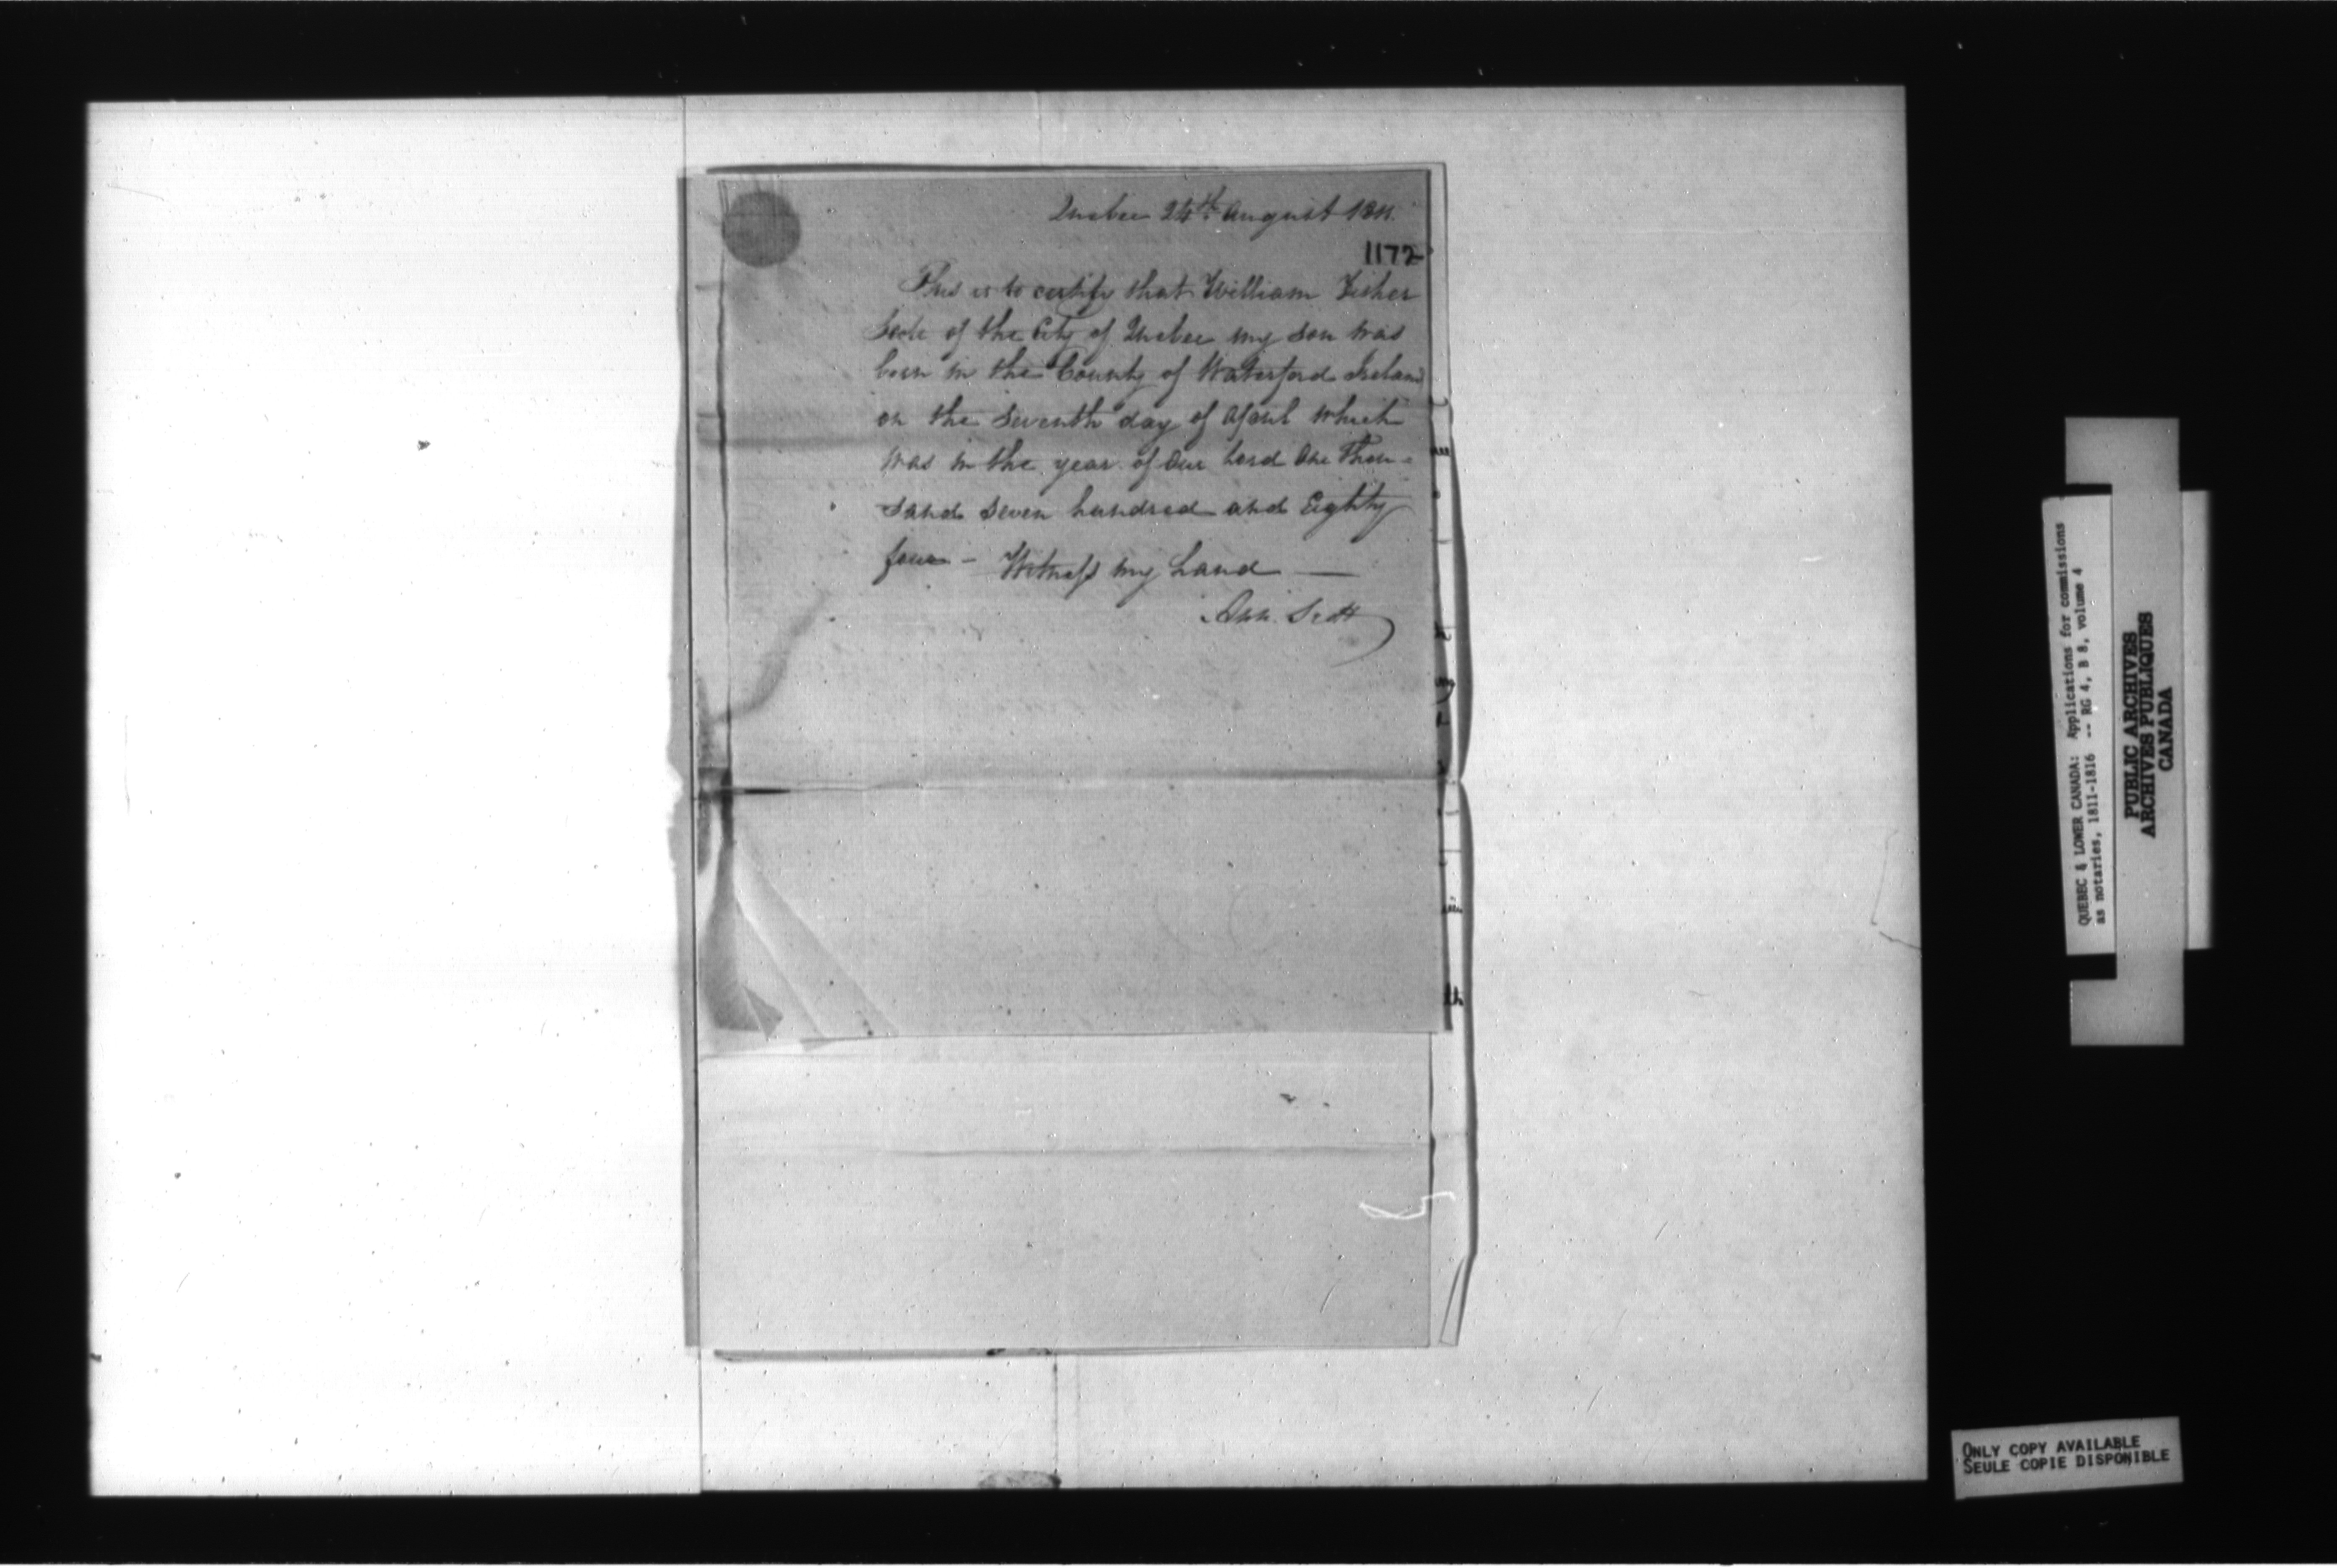 Quebec 24th August 1811.
1172
This is to certify that William Fisher
Scott of the City of Quebec my son was
born in the County of Waterford Ireland
on the Seventh day of April which
was in the year of Our Lord One Thou-
sand Seven hundred and Eighty
four - Witness my hand —
Ann Scott
QUEBEC & LOWER CANADA: Applications for commissions
as notaries, 1811-1816 -- RG 4, B 8, volume 4
PUBLIC ARCHIVES
ARCHIVES PUBLIQUES
CANADA
ONLY COPY AVAILABLE
SEULE COPIE DISPONIBLE